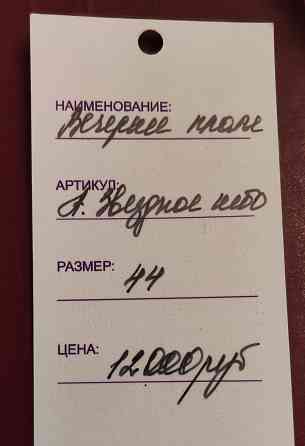 НАИМЕНОВАНИЕ:
Вечернее платье
АРТИКУЛ:
А. Звездное небо
РАЗМЕР:
44
ЦЕНА:
12000 руб